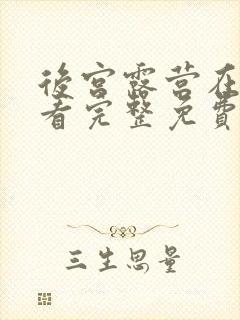 後宫露营在
看完整免費
三生思量